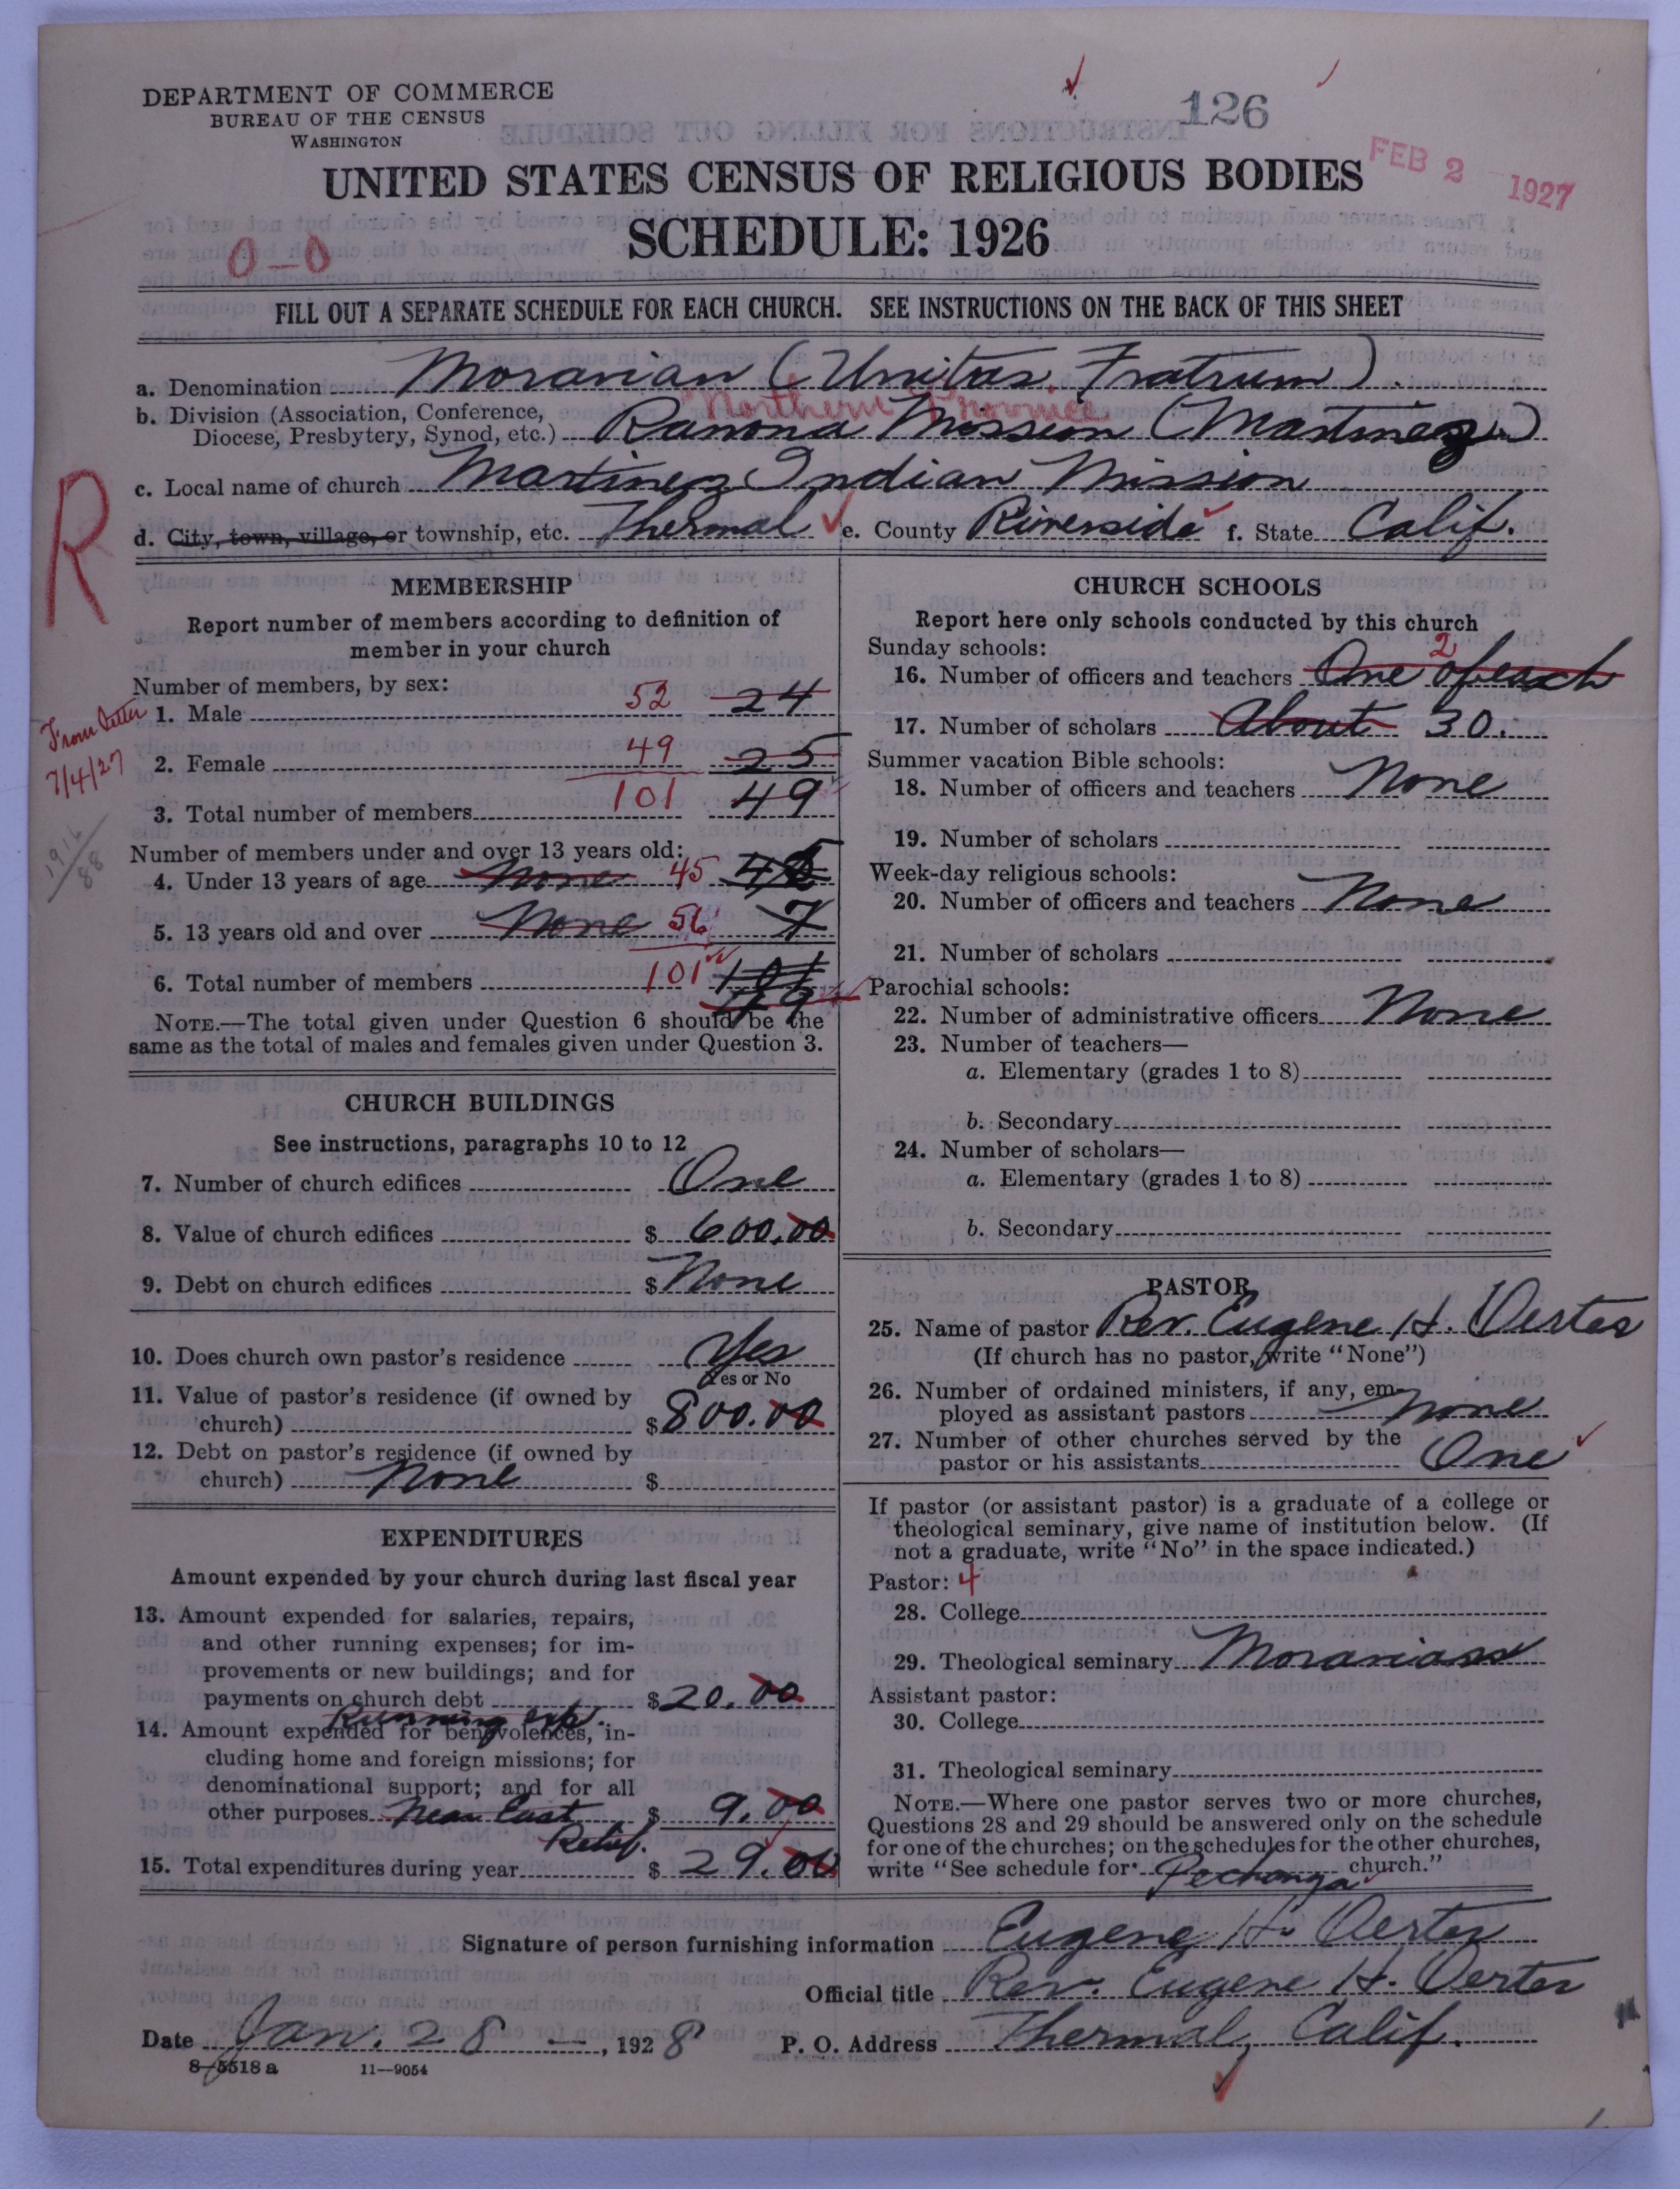 DEPARTMENT OF COMMERCE
BUREAU OF THE CENSUS
WASHINGTON
126
FEB 2 1927
UNITED STATES CENSUS OF RELIGIOUS BODIES
SCHEDULE: 1926
0-0
FILL OUT A SEPARATE SCHEDULE FOR EACH CHURCH. SEE INSTRUCTIONS ON THE BACK OF THIS SHEET
a. Denomination Moravian (Unitas Fratrum).
Northern Province
b. Division (Association, Conference,
Diocese, Presbytery, Synod, etc.) Ramona Mission (Martinez)
c. Local name of church Martinez Indian Mission
R
d. City, town, village, or township, etc. Thermal e. County Riverside f. State Calif.
MEMBERSHIP
Report number of members according to definition of
member in your church
Number of members, by sex:
From letter
7/4/27
1. Male 52 24
2. Female 49 25
3. Total number of members 101 49
1916
88
Number of members under and over 13 years old:
4. Under 13 years of age None 45
5. 13 years old and over None 56 7
6. Total number of members 101 49
NOTE.—The total given under Question 6 should be the
same as the total of males and females given under Question 3.
CHURCH BUILDINGS
See instructions, paragraphs 10 to 12
7. Number of church edifices One
8. Value of church edifices $ 600.00
9. Debt on church edifices $ None
10. Does church own pastor's residence Yes
Yes or No
11. Value of pastor's residence (if owned by
church) $ 800.00
12. Debt on pastor's residence (if owned by
church) None $
EXPENDITURES
Amount expended by your church during last fiscal year
13. Amount expended for salaries, repairs,
and other running expenses; for im-
provements or new buildings; and for
payments on church debt $ 20.00
Running exp.
14. Amount expended for benevolences, in-
cluding home and foreign missions; for
denominational support; and for all
other purposes Near East $ 9.00
Relief.
15. Total expenditures during year $ 29.00
CHURCH SCHOOLS
Report here only schools conducted by this church
Sunday schools:
16. Number of officers and teachers One of each 2
17. Number of scholars About 30.
Summer vacation Bible schools:
18. Number of officers and teachers None
19. Number of scholars
Week-day religious schools:
20. Number of officers and teachers None
21. Number of scholars
Parochial schools:
22. Number of administrative officers None
23. Number of teachers—
a. Elementary (grades 1 to 8)
b. Secondary
24. Number of scholars—
a. Elementary (grades 1 to 8)
b. Secondary
PASTOR
25. Name of pastor Rev. Eugene H. Oerter
(If church has no pastor, write "None")
26. Number of ordained ministers, if any, em-
ployed as assistant pastors None
27. Number of other churches served by the
pastor or his assistants One
If pastor (or assistant pastor) is a graduate of a college or
theological seminary, give name of institution below. (If
not a graduate, write "No" in the space indicated.)
Pastor: 4
28. College
29. Theological seminary Moravian
Assistant pastor:
30. College
31. Theological seminary
NOTE.—Where one pastor serves two or more churches,
Questions 28 and 29 should be answered only on the schedule
for one of the churches; on the schedules for the other churches,
write "See schedule for Pechanga church."
Signature of person furnishing information Eugene H. Oerter
Official title Rev. Eugene H. Oerter
Date Jan. 28 —, 1928 P. O. Address Thermal, Calif.
8-5518 a 11—9054